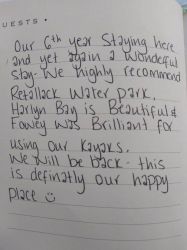 UESTS •
Our 6th year Staying here
and yet again a wonderful
stay. We highly recommend
Retallack Water park.
Harlyn Bay is Beautiful &
Fowey was Brilliant for
using our Kayaks.
We will be back - this
is definatly our happy
place ☺